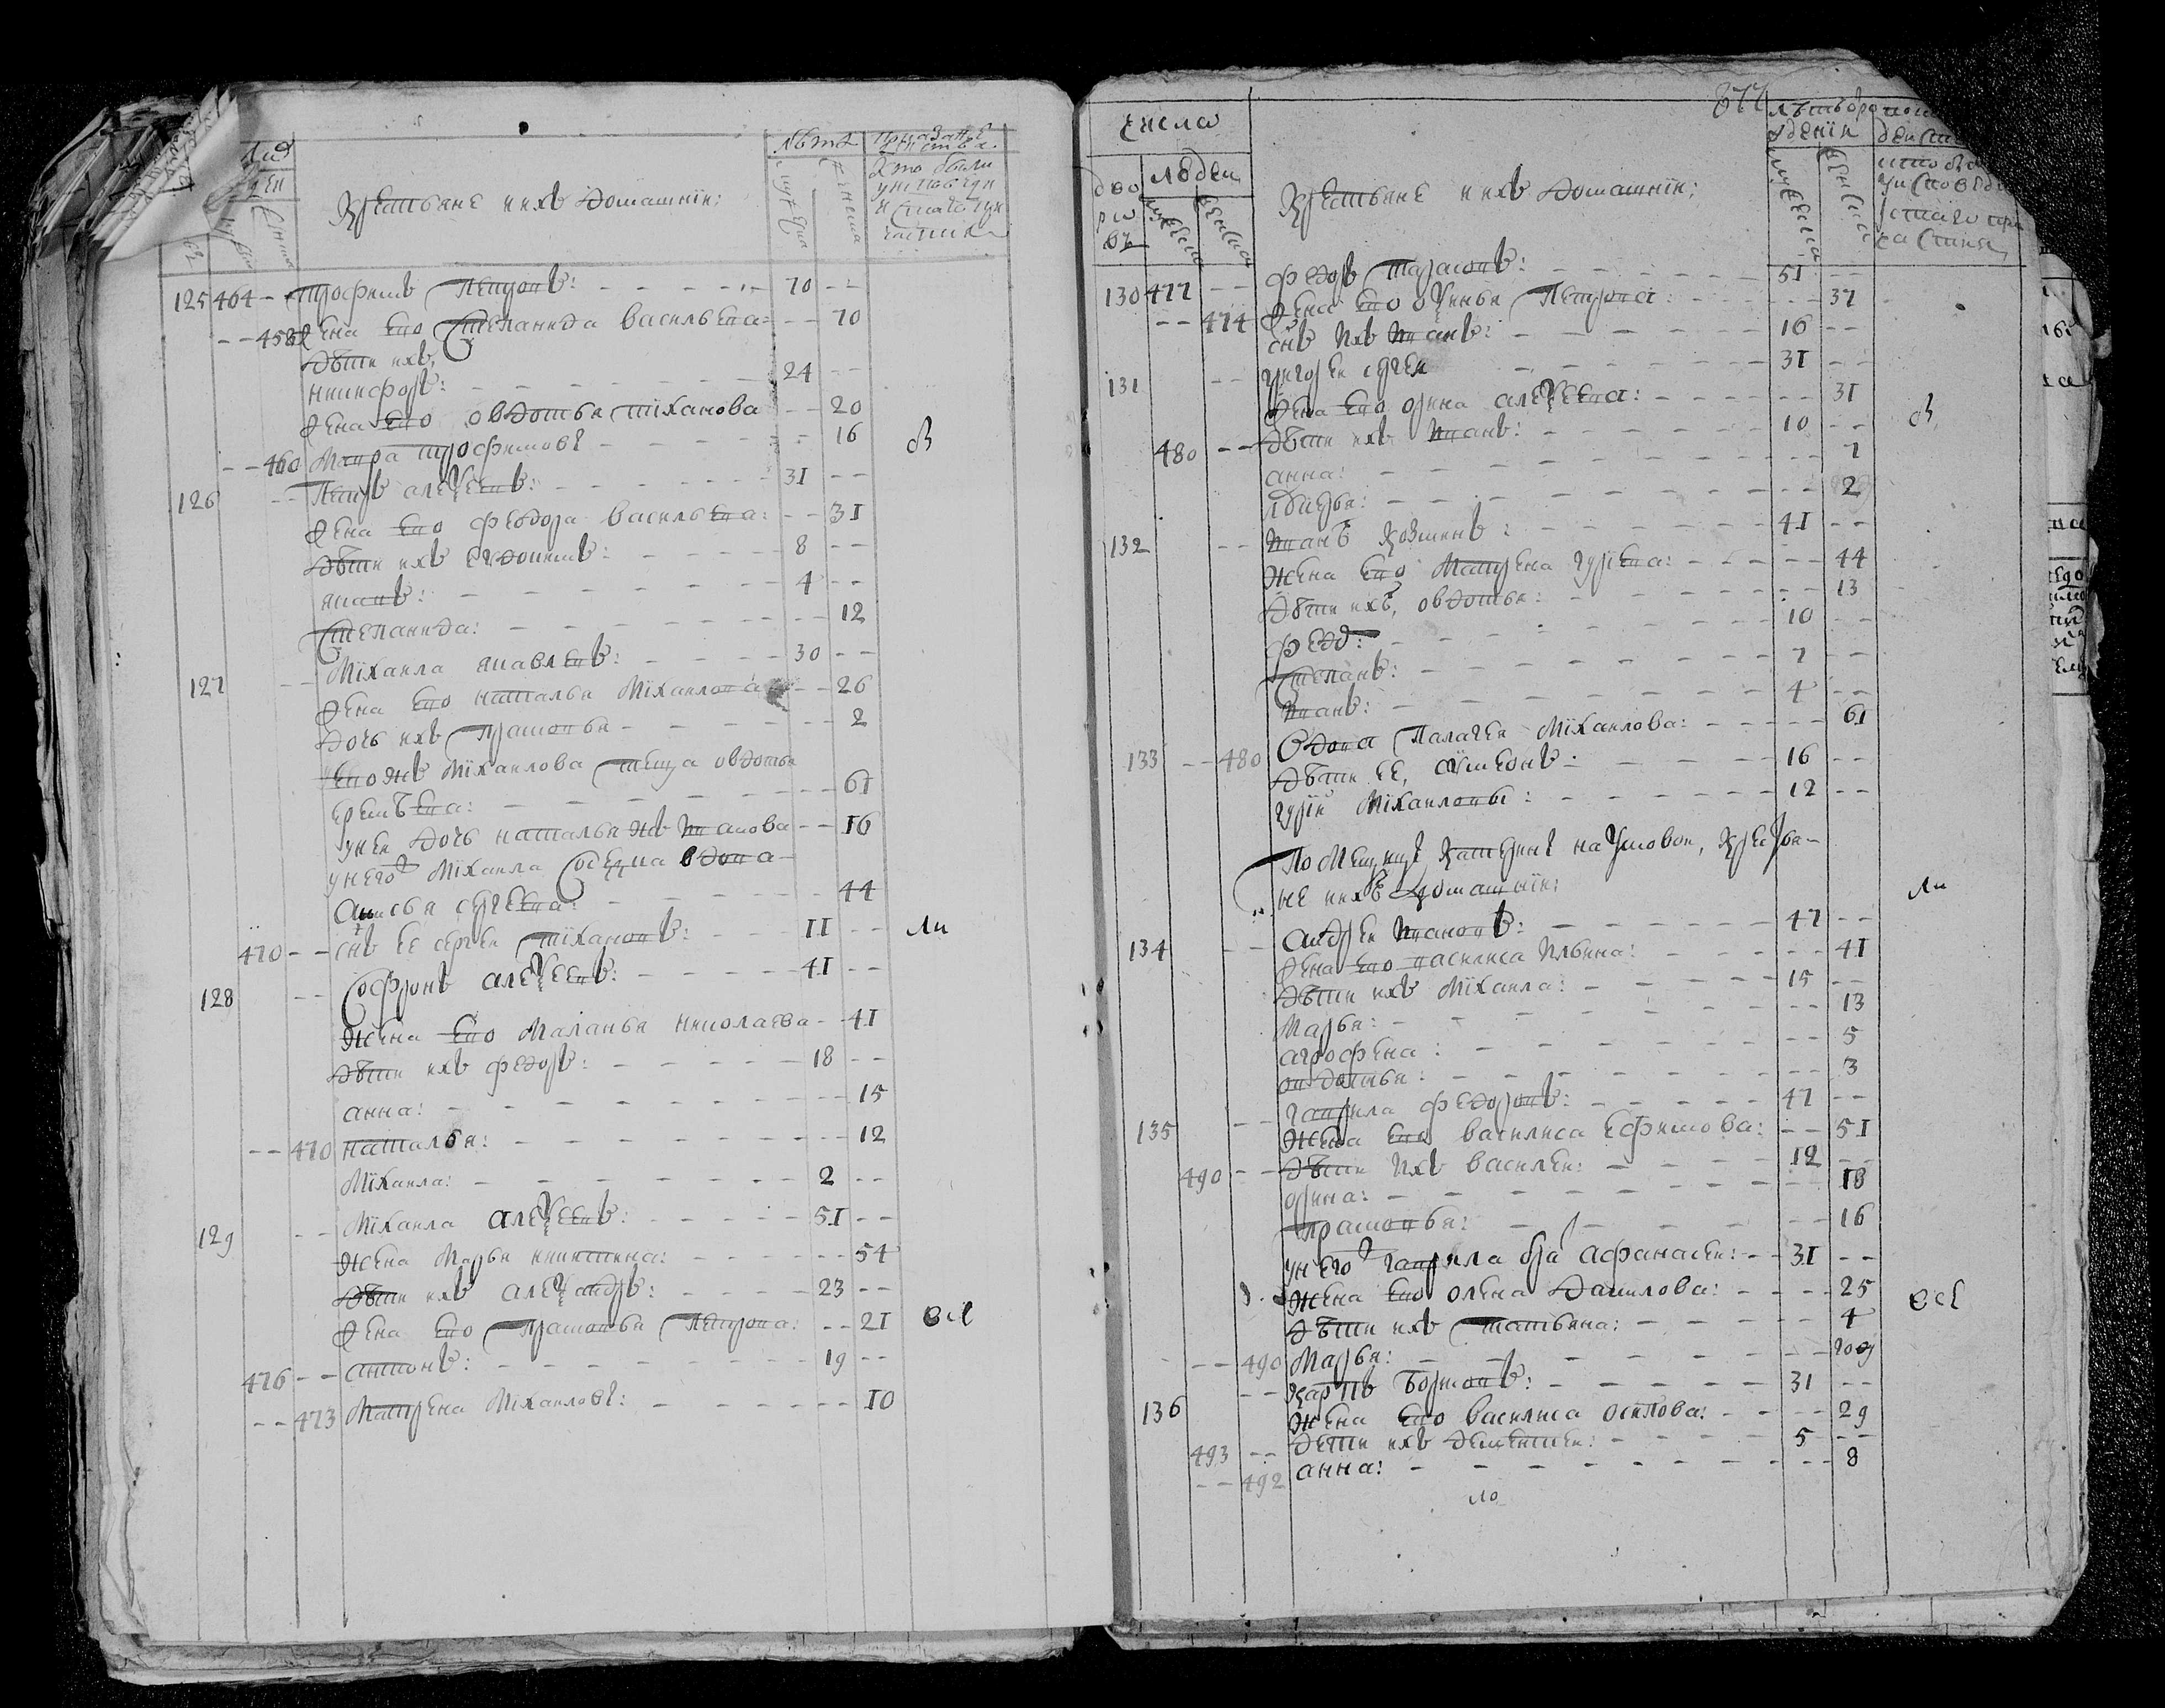 люд
дей
лѣта
крестьяне и ихъ домашнїи:
кто были
у исповеди
125 464 -- трофимъ петровъ: 70 --
-- 458 жена ево степанида васильева: -- 70
дѣти ихъ
никифоръ: 24 --
жена ево овдотья тїханова -- 20
-- 460 мавра трофимова -- 16
126 -- петръ алеѯеевъ: 31 --
жена ево федора васильева: -- 31
дѣти ихъ евдокимъ: 8 --
4 --
степанида: -- 12
127 -- мїхаила яковлевъ: 30 --
жена ево наталья мїхаилова -- 26
дочь ихъ прасковья -- 2
ево жъ мїхаилова теща овдотья
еремѣева: -- 61
у неи дочь наталья жъ иванова -- 16
у него мїхаила соседка вдова
сергеева: -- 44
470 -- снъ ее сергеи тїхановъ: 11 --
128 -- софронъ алеѯеевъ: 41 --
жена ево маланья николаева -- 41
дѣти ихъ федоръ: 18 --
анна: -- 15
-- 470 наталья: -- 12
мїхаила: 2 --
129 -- мїхаила алеѯеевъ: 51 --
жена марья никитина: -- 54
дѣти ихъ алеѯандръ: 23 --
жена ево прасковья петрова: -- 21
476 -- антонъ: 19 --
-- 473 матрена мїхаилова: -- 10
числа
дво
ро
въ
людеи
крестьяне и ихъ домашнїи:
130 477 -- федоръ тарасовъ: 51 --
-- 474 жена ево оѯинья петрова: -- 37
снъ ихъ иванъ: 16 --
131 -- григореи сергеи 31 --
жена ево орина алеѯеева: -- 31
480 -- дѣти ихъ иванъ: 10 --
анна: -- 7
дарья: -- 2
132 -- иванъ козминъ: 41 --
жена ево матрена гурїева: -- 44
дѣти ихъ, овдотья: -- 13
федо: 10 --
степанъ: 7 --
иванъ: 4 --
133 -- 480 вдова палагея мїхаилова: -- 61
дѣти ее, симеонъ: 16 --
гурїи мїхаиловы: 12 --
помещицы катерины наумовои, крестья-
не и ихъ домашнїи:
134 -- андреи ивановъ: 47 --
жена ево василиса ильина: -- 41
дѣти ихъ мїхаила: 15 --
марья: -- 13
агрофена: -- 5
овдотья: -- 3
135 -- гаврила федоровъ: 47 --
жена ево василиса ефимова: -- 51
490 -- дѣти ихъ василеи: 12 --
орина: -- 18
прасковья: -- 16
у него гаврила бра афанасеи: 31 --
жена ево олена данилова: -- 25
дѣти ихъ татьяна: -- 4
-- 490 марья: --
136 -- карпъ борисовъ: 31 --
жена ево василиса осипова: -- 29
493 -- дети ихъ дементеи: 5 --
-- 492 анна: -- 8